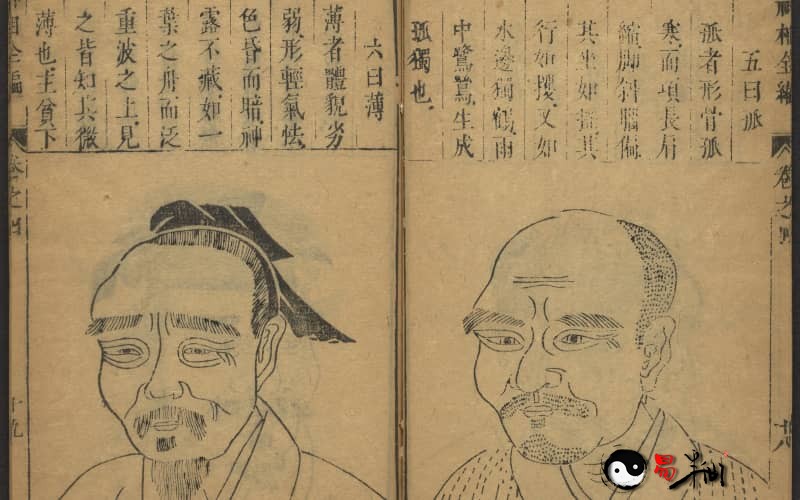 相全編
卷之四
五曰孤
孤者形骨孤
寒而項長肩
縮脚斜腦偏
其坐如搖其
行如攫又如
水邊獨鶴雨
中鷺鷥生成
孤獨也
六曰薄
薄者體貌劣
弱形輕氣怯
色昏而暗神
露不藏如一
葉之舟而泛
重波之上見
之皆知其微
薄也主貧下
相全編
卷之四
十九
易